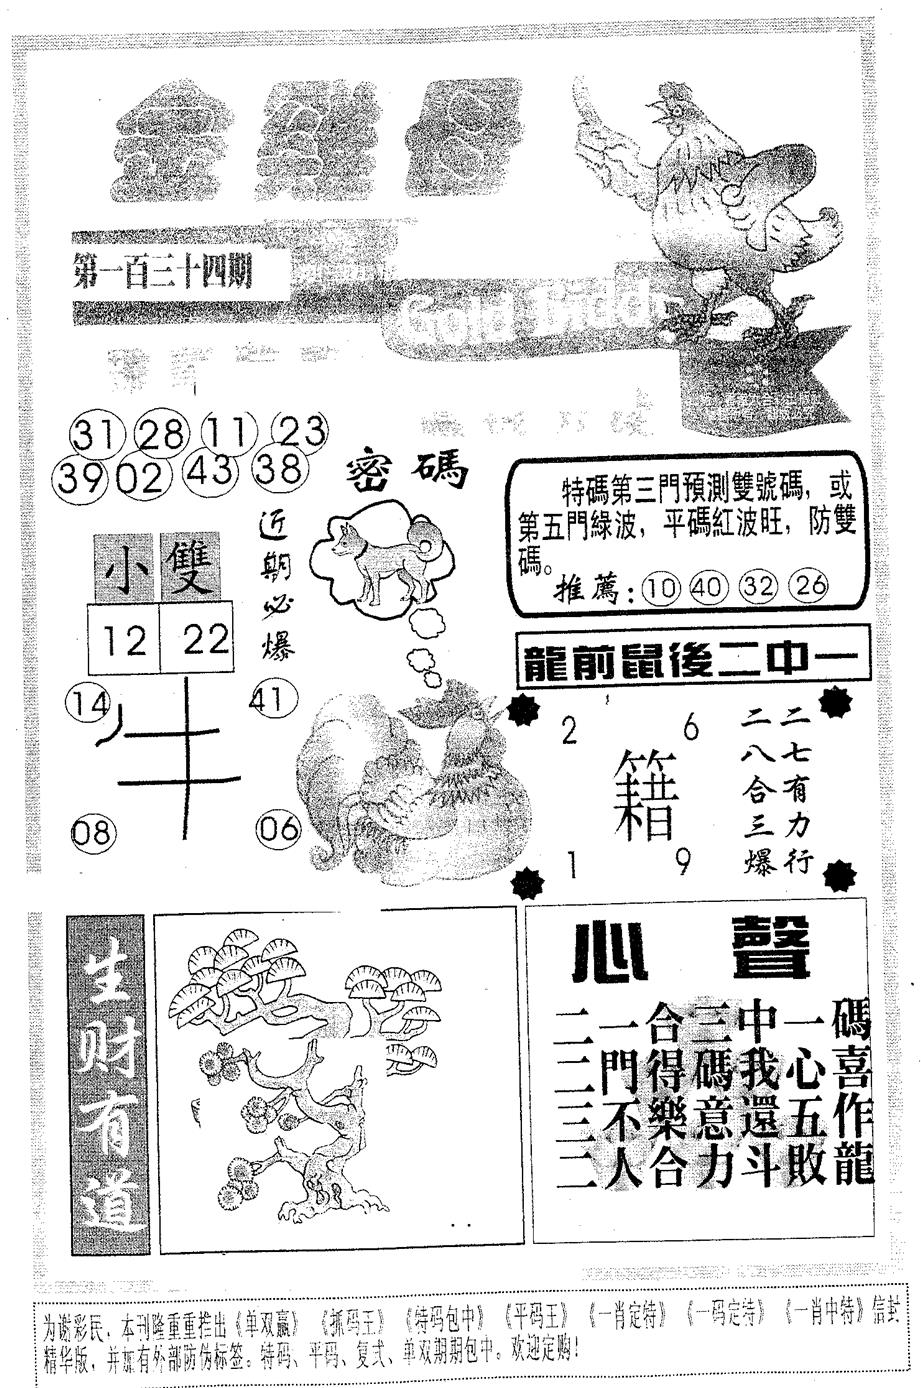 金雞母
第一百三十四期
Gold Bidd
31 28 11 23
39 02 43 38
密碼
近期必爆
小 雙
12 22
14 41
牛
08 06
特碼第三門預測雙號碼，或
第五門綠波，平碼紅波旺，防雙
碼。
推薦：10 40 32 26
龍前鼠後二中一
2 6
籍
1 9
二二
八七
合有
三力
爆行
生財有道
心聲
二一合三中一碼
二門得碼我心喜
三不樂意還五作
二人合力斗敗龍
为谢彩民，本刊隆重重推出《单双赢》《抓码王》《特码包中》《平码王》《一肖定特》《一码定特》《一肖中特》信封
精华版，并加有外部防伪标签。特码、平码、复式、单双期期包中。欢迎定购！